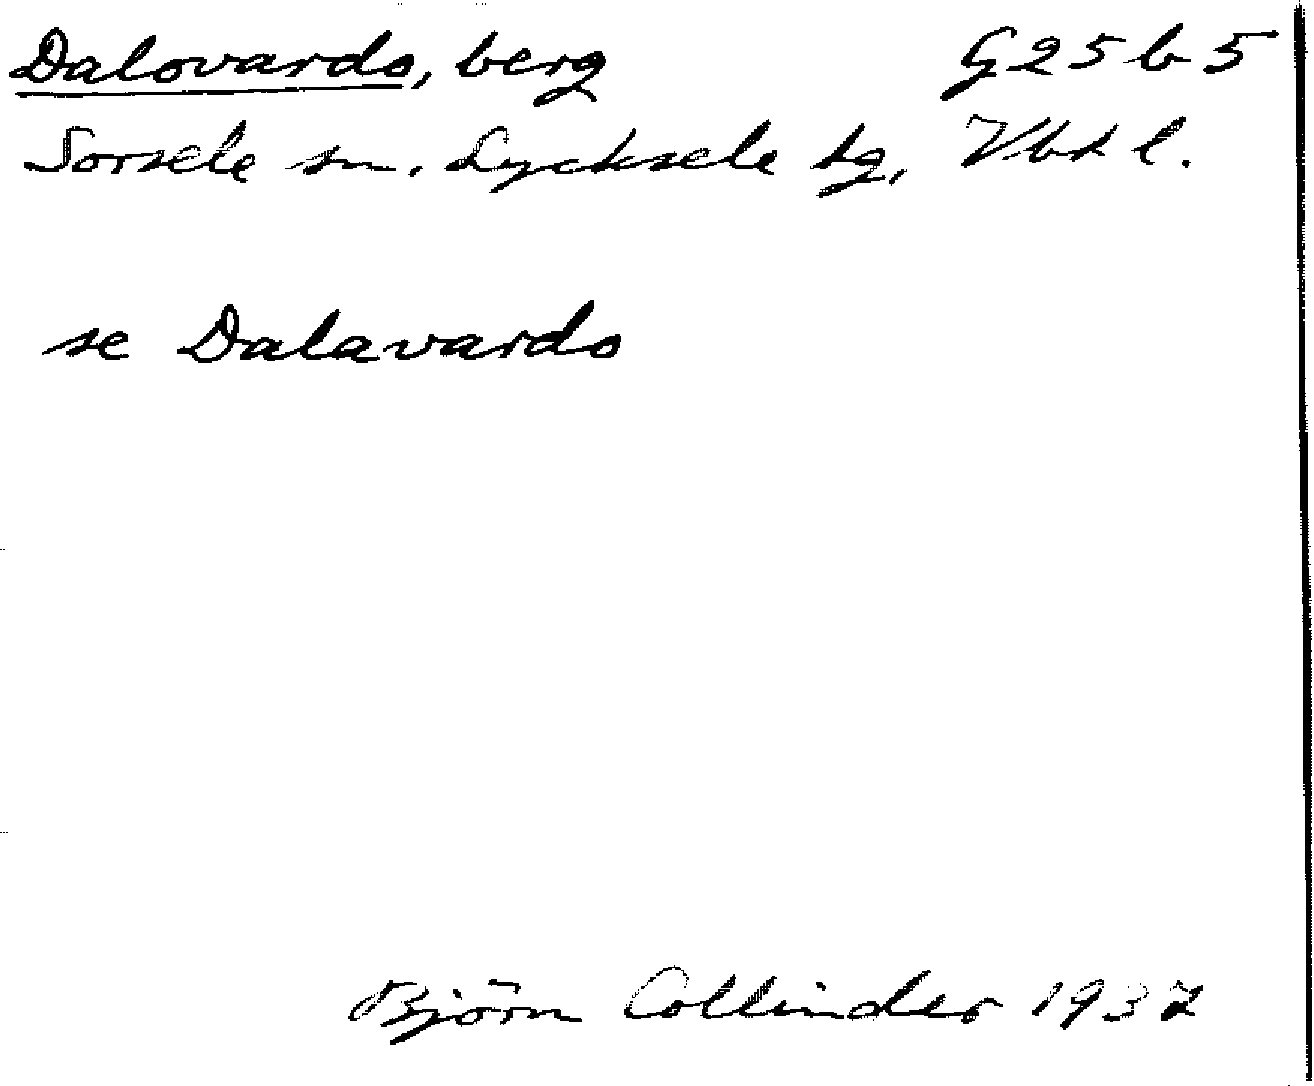 Dalovardo, berg G25b5
Sorsele sn. Lycksele tg, Vbt l.
se Dalavardo
Björn Collinder 1937